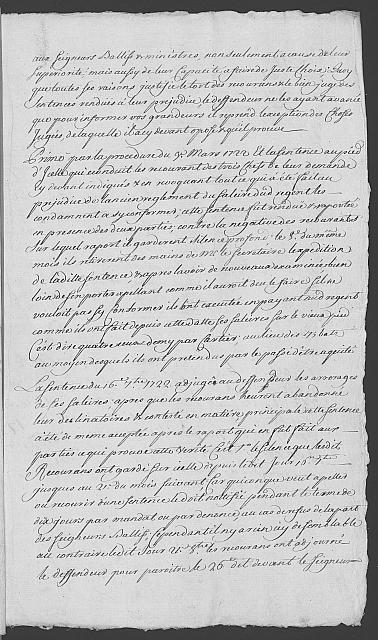 aux Seigneurs Baillifs & ministres, non seulement a cause de leur
superiorité: mais aussy de leur Capacité a faire de juste Choix; Quoy
que toutes ses raisons justifie le tort des recourans & le bien jugé des
Sentences rendües à leur prejudice, le deffendeur ne les ayant avancé
que pour informer vos grandeurs il reprend l'exception des Choses
Jugées, de laquelle il s'ay devant oposé & qu'il prouve
Primo par la procedure du Mars 1722 Et la Sentence au pied
d'Jcelle qui econduit les recourans des trois Chefs de leur demande
Cy devant indiqués & en revoquant tout ce qui a été fait au
prejudice de l'ancien reglement du Salaire dud regent les
condamnent a s'y conformer, cette Sentence fut rendüe & raportée
en presence des deux parties, contre la negative des recourants
Sur lequel raport ils garderent silence profond, le du même
mois ils retirerent des mains de Mr. le Secretaire l'expedition
de laditte Sentence & apres l'avoir de nouveau examinée, bien
loin de s'en porter apellant comme il auroit deu le faire s'ils ne
vouloit pas s'y conformer ils l'ont executée en payant aud regent
comme ils ont fait depuis cette datte ses Salaires sur le vieux pied
C'est d'ere quatre seus & demy par Cartier, au lieu des batz
au moyen desquels ils ont pretendus par le passé d'etre aquité
La Sentence du 16e. 1722 adjuge au deffendeur les arrerages
de ses Salaires, apres que les recourans heurent abandonné
leur declinatoires & contesté en matiere principale cette Sentence
a été de meme acceptée apres le raport qui en fut fait aux
parties ce qui prouve cette verité C'est 1o. le silence que lesdit
Recourans ont gardé sur icelle depuis ledit Jour 16e.
jusques au 21e. du mois suivant, car quiconque veut apeller
ou recourir d'une Sentence le doit notifié pendant le terme de
dix jours par mandat ou par denonce au cas de refus de la part
des seigneurs Baillif. Cependant il n'y a rien icy de semblable
au contraire ledit Jour 21e. les recourans ont adjourné
le deffendeur pour paroitre le 26e. dit devant le Seigneur